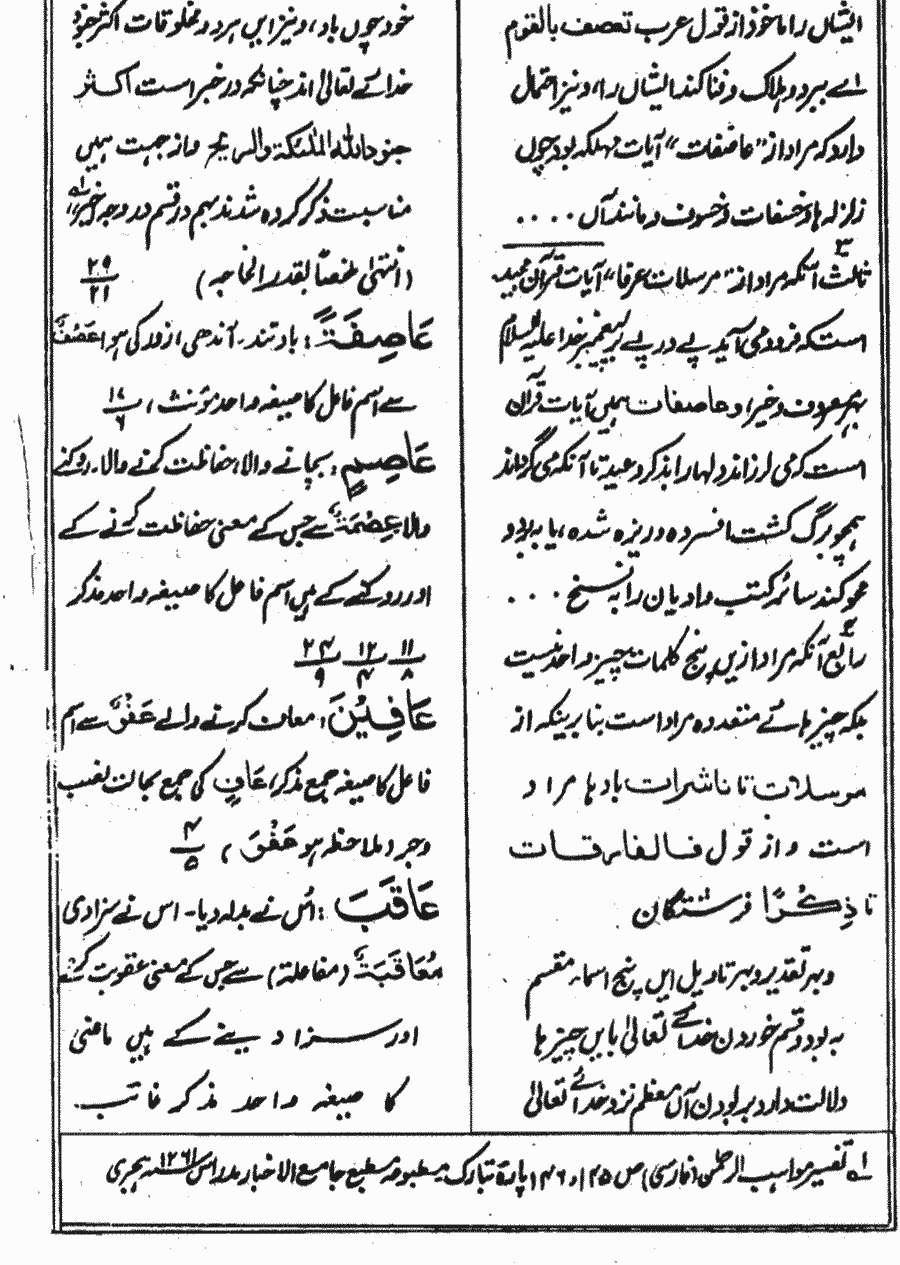 ایشاں را ماخوذ از قول عرب تعصف بالقوم
اے ببرد و ہلاک و فنا کند ایشاں را، و نیز احتمال
دارد کہ مراد از "عاصفات" آیات مہلکہ بود چوں
زلزلہ ہا و خسفات و خسوف و مانند آں ....
ثالث آنکہ مراد از "مرسلات عرفا" آیات قرآن مجید
است کہ فرود می آید پے در پے بر پیغمبر خدا علیہ السلام
بہر معروف و خیر، و عاصفات ہمیں آیات قرآن
است کہ می لرزاند دلہا را بذکر وعید تا آنکہ می گرداند
ہمچو برگ کشت افسردہ و ریزہ شدہ، یا بہ بود
محو کند سائر کتب و ادیان را بہ نسخ ....
رابع آنکہ مراد ازیں پنج کلمات چیز واحد نیست
بلکہ چیز ہائے متعددہ مراد است بنا برینکہ از
مرسلات تا ناشرات باد ہا مراد
است و از قول فالفارقات
تا ذِكْرًا فرشتگان
و بہر تقدیر و بہر تاویل ایں پنج اسماء مقسم
بہ بود و قسم خوردن خدائے تعالیٰ بایں چیز ہا
دلالت دارد بر بودن آں معظم نزد خدائے تعالیٰ
خود چوں باد، و نیز ایں ہر دو مخلوقات اکثر جنود
خدائے تعالیٰ اند چنانکہ در خبر است اکثر
جنود اللہ الملٰئکۃ والریح و از جہت ہمیں
مناسبت ذکر کردہ شدند بہم در قسم در وجہ خیر"۱ھ
(انتہیٰ ملخصاً بقدر الحاجہ) ۲۹/۲۱
عَاصِفَةً: باد تند۔ آندھی از ولد کی ہوا عَصْفٌ
سے اسم فاعل کا صیغہ واحد مؤنث، ۱۷/۶
عَاصِمٍ: بچانے والا، حفاظت کرنے والا۔ روکنے
والا عِصْمَةٌ سے جس کے معنی حفاظت کرنے کے
اور روکنے کے ہیں اسم فاعل کا صیغہ واحد مذکر
۱۱/۸ ۱۲/۴ ۲۴/۹
عَافِيْنَ: معاف کرنے والے عَفْوٌ سے اسم
فاعل کا صیغہ جمع مذکر، عَافٍ کی جمع بحالت نصب
و جر (ملاحظہ ہو عَفْوَ) ۴/۵
عَاقَبَ: اُس نے بدلہ دیا۔ اس نے سزا دی
مُعَاقَبَةٌ (مفاعلۃ) سے جس کے معنی عقوبت کرنے
اور سزا دینے کے ہیں ماضی
کا صیغہ واحد مذکر غائب۔
۱ھ تفسیر مواہب الرحمٰن (فارسی) ص ۱۴۵، ۱۴۶ پارۂ تبارک۔ مطبوعہ مطبع جامع الاخبار مدراس ۱۲۶۱ سنہ ہجری